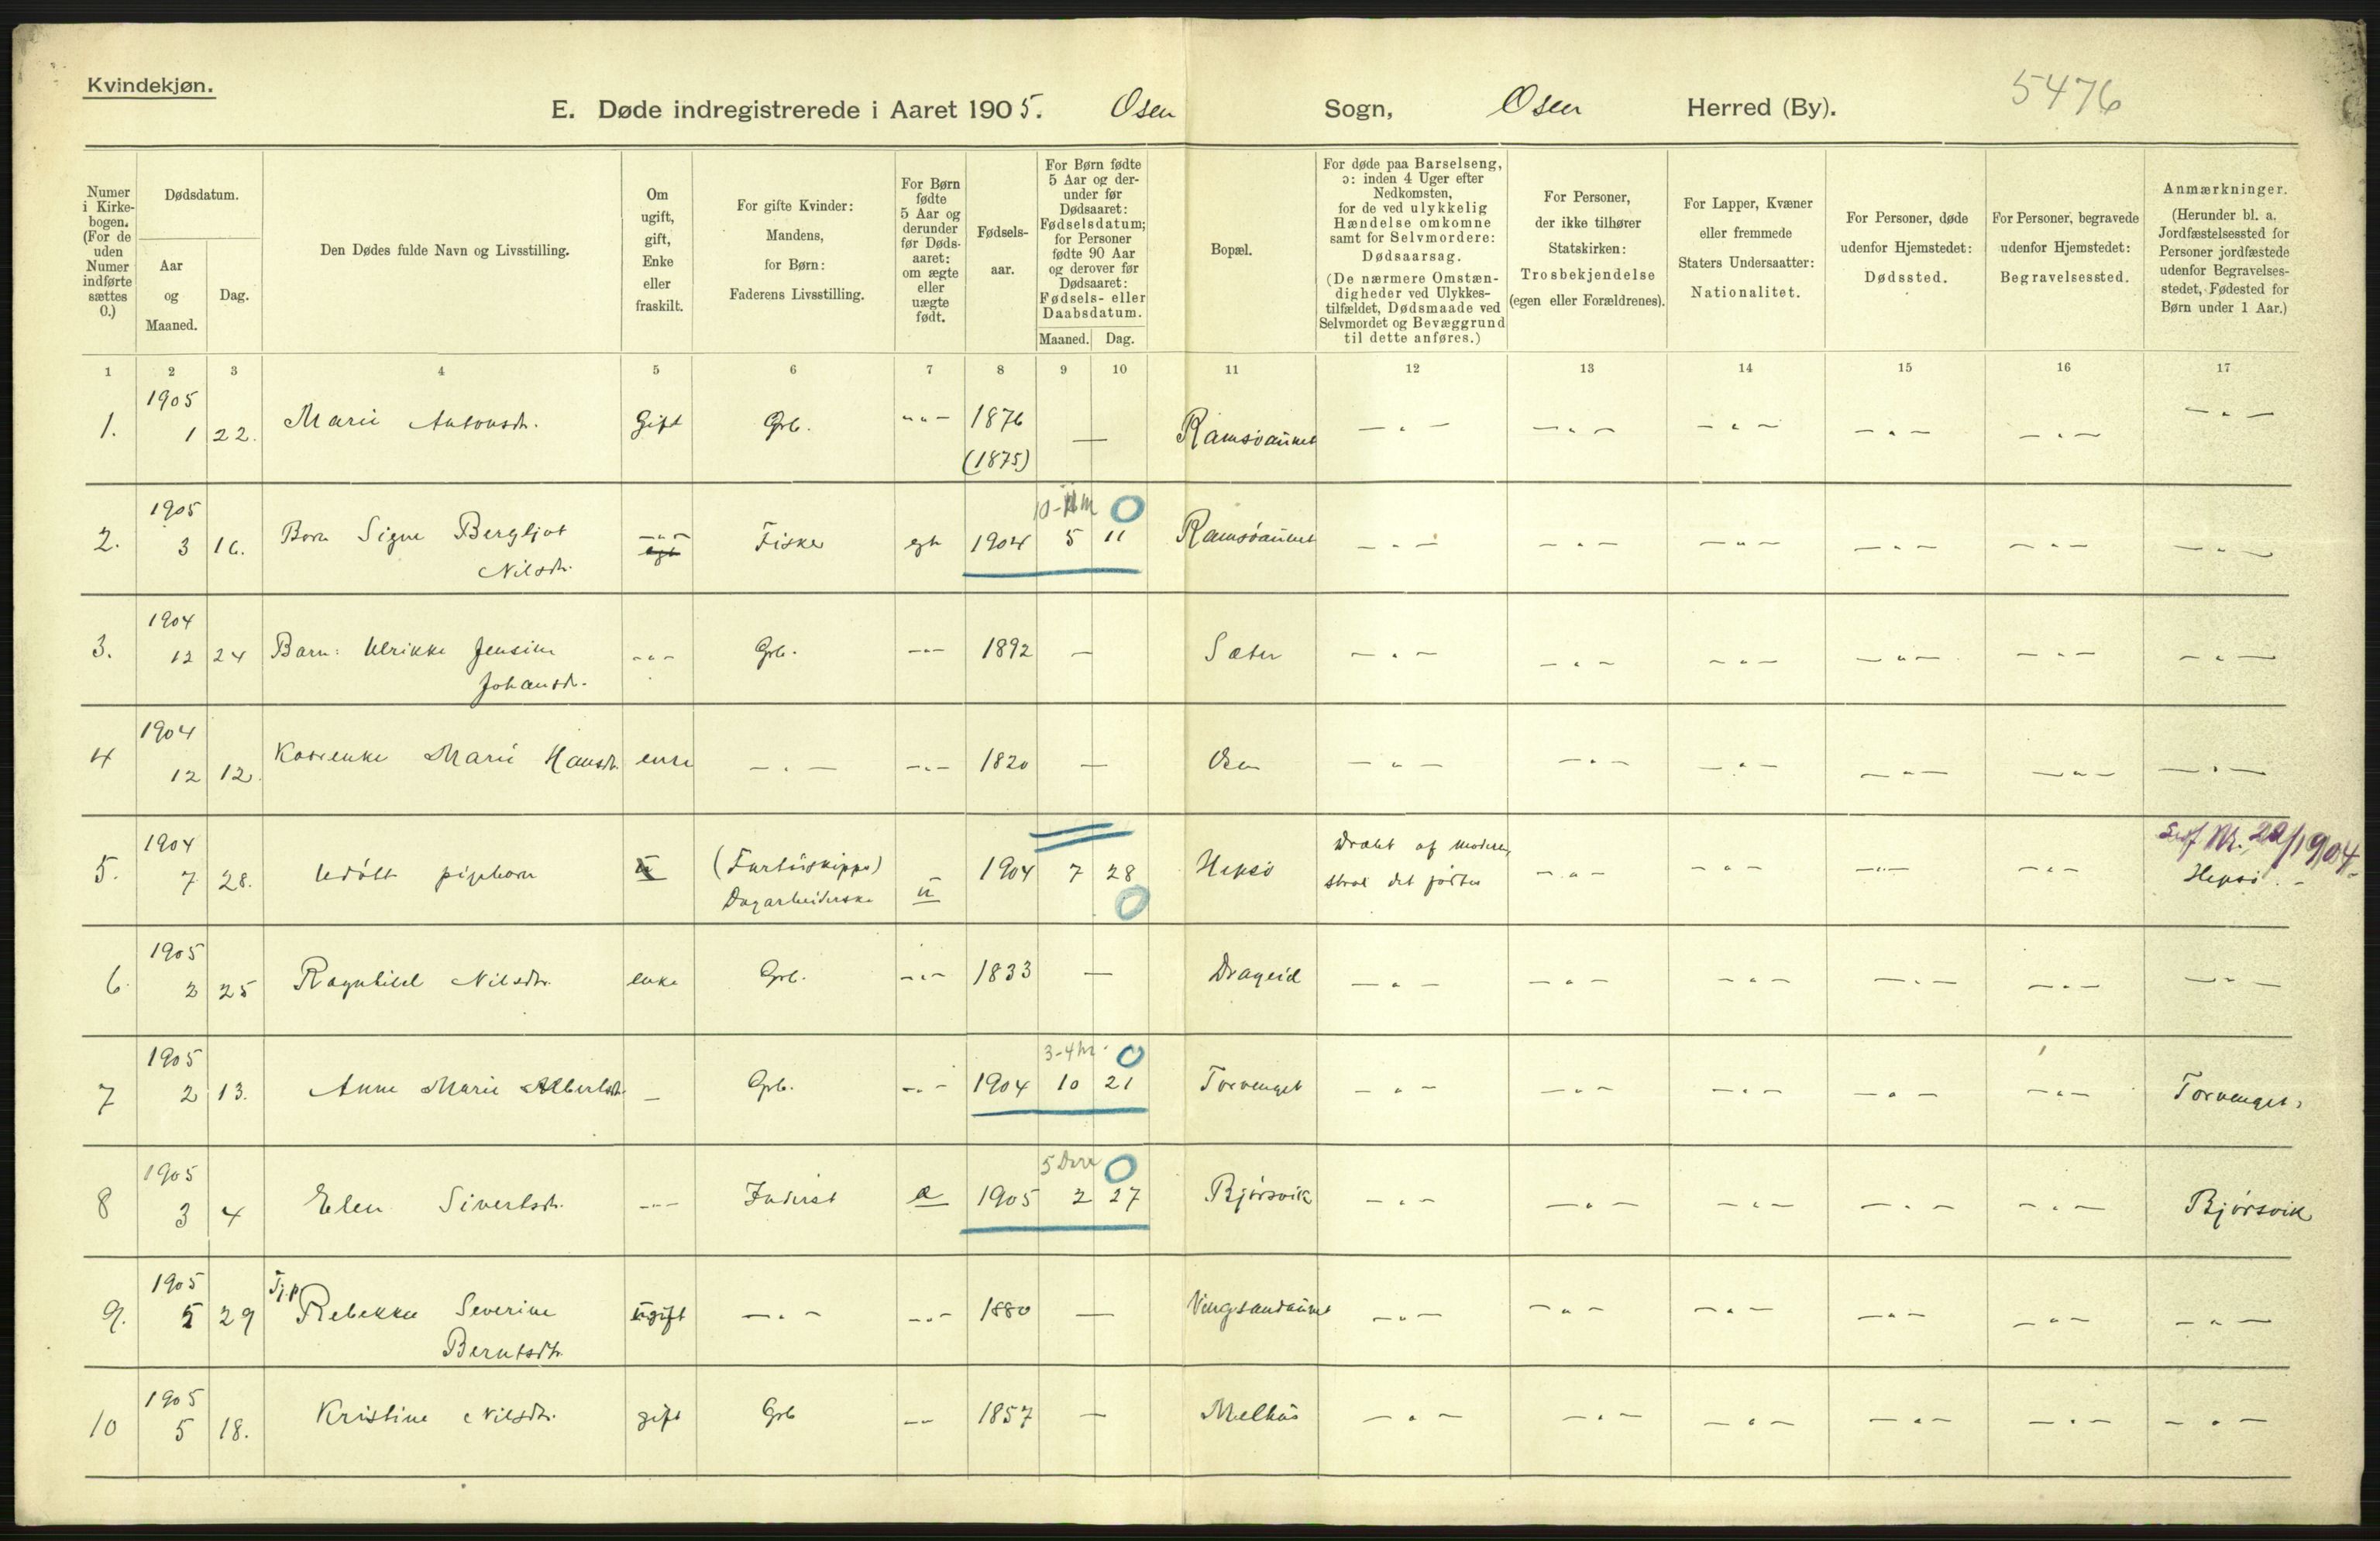 Kvindekjøn.
E. Døde indregistrerede i Aaret 1905. Osen Sogn, Osen Herred (By). 5476
Numer i Kirkebogen. (For de uden Numer indførte sættes 0.)
Dødsdatum.
Aar og Maaned.
Dag.
Den Dødes fulde Navn og Livsstilling.
Om ugift, gift, Enke eller fraskilt.
For gifte Kvinder: Mandens, for Børn: Faderens Livsstilling.
For Børn fødte 5 Aar og derunder før Dødsaaret: om ægte eller uægte født.
Fødselsaar.
For Børn fødte 5 Aar og derunder før Dødsaaret: Fødselsdatum; for Personer fødte 90 Aar og derover før Dødsaaret: Fødsels- eller Daabsdatum.
Maaned. Dag.
Bopæl.
For døde paa Barselseng, ɔ: inden 4 Uger efter Nedkomsten, for de ved ulykkelig Hændelse omkomne samt for Selvmordere: Dødsaarsag. (De nærmere Omstændigheder ved Ulykkestilfældet, Dødsmaade ved Selvmordet og Bevæggrund til dette anføres.)
For Personer, der ikke tilhører Statskirken: Trosbekjendelse (egen eller Forældrenes).
For Lapper, Kvæner eller fremmede Staters Undersaatter: Nationalitet.
For Personer, døde udenfor Hjemstedet: Dødssted.
For Personer, begravede udenfor Hjemstedet: Begravelsessted.
Anmærkninger. (Herunder bl. a. Jordfæstelsessted for Personer jordfæstede udenfor Begravelsesstedet, Fødested for Børn under 1 Aar.)
1 2 3 4 5 6 7 8 9 10 11 12 13 14 15 16 17
1905
1. 1 22. Marie Antonsdr. Gift Grb. -"- 1876 — Ramsøaunet -"- -"- -"- -"- -"- -"-
(1875)
1905 10-11 m 0
2. 3 16. Barn Signe Bergljot -"- Fisker egte 1904 5 11 Ramsøaunet -"- -"- -"- -"- -"- -"-
Nilsdr.
1904
3. 12 24 Barn: Ulrikke Jensine -"- Grb. -"- 1892 — Sæter -"- -"- -"- -"- -"- -"-
Johansdr.
1904
4 12 12. Kaarenke Marie Hansdr. enke -"- -"- 1820 — Osen -"- -"- -"- -"- -"- -"-
1904 Nr. 22/1904
5. 7 28. Udøbt pigebarn u (Fartøiskipper) u 1904 7 28 Hepsø Dræbt af moderen, -"- -"- -"- -"- Hepsø.
Dagarbeiderske 0 strax det fødtes
1905
6. 2 25 Ragnhild Nilsdtr. enke Grb. -"- 1833 — Drageid -"- -"- -"- -"- -"- -"-
1905 3-4 m. 0
7 2 13. Anne Marie Albertsdtr. — Grb. -"- 1904 10 21 Torvenget -"- -"- -"- -"- -"- Torvenget.
1905 5 Dage 0
8 3 4 Elen Sivertsdr. -"- Inderst 1905 2 27 Bjørsvik -"- -"- -"- -"- -"- Bjørsvik
1905 Tj.p.
9. 5 29 Rebekka Severine ugift -"- -"- 1880 — Vingsandaunet -"- -"- -"- -"- -"- -"-
Berntsdtr.
1905
10 5 18. Kristine Nilsdtr. gift Grb -"- 1857 — Melhus -"- -"- -"- -"- -"- -"-